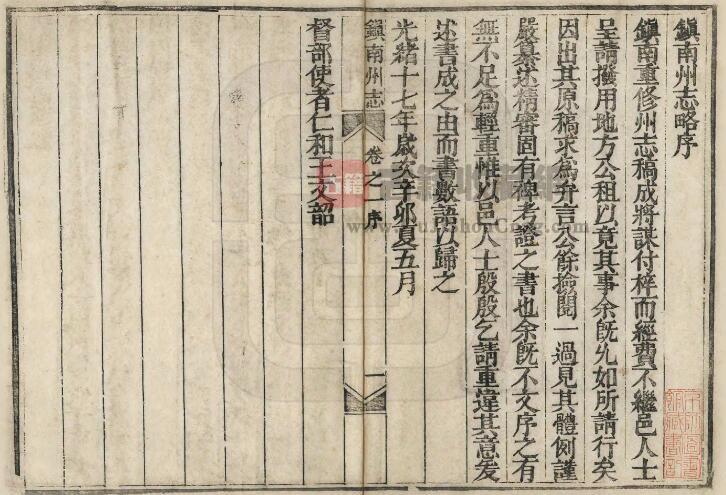 鎮南州志略序
鎮南重修州志稿成將謀付梓而經費不繼邑人士
呈請撥用地方公租以竟其事余旣允如所請行矣
因出其原稿求爲弁言公餘撿閱一過見其體例謹
嚴纂述精審固有裨考證之書也余旣不文序之有
無不足爲輕重惟以邑人士殷殷乞請重違其意爰
述書成之由而書數語以歸之
光緒十七年歲次辛卯夏五月
鎮南州志 卷之一序 一
督部使者仁和王文韶